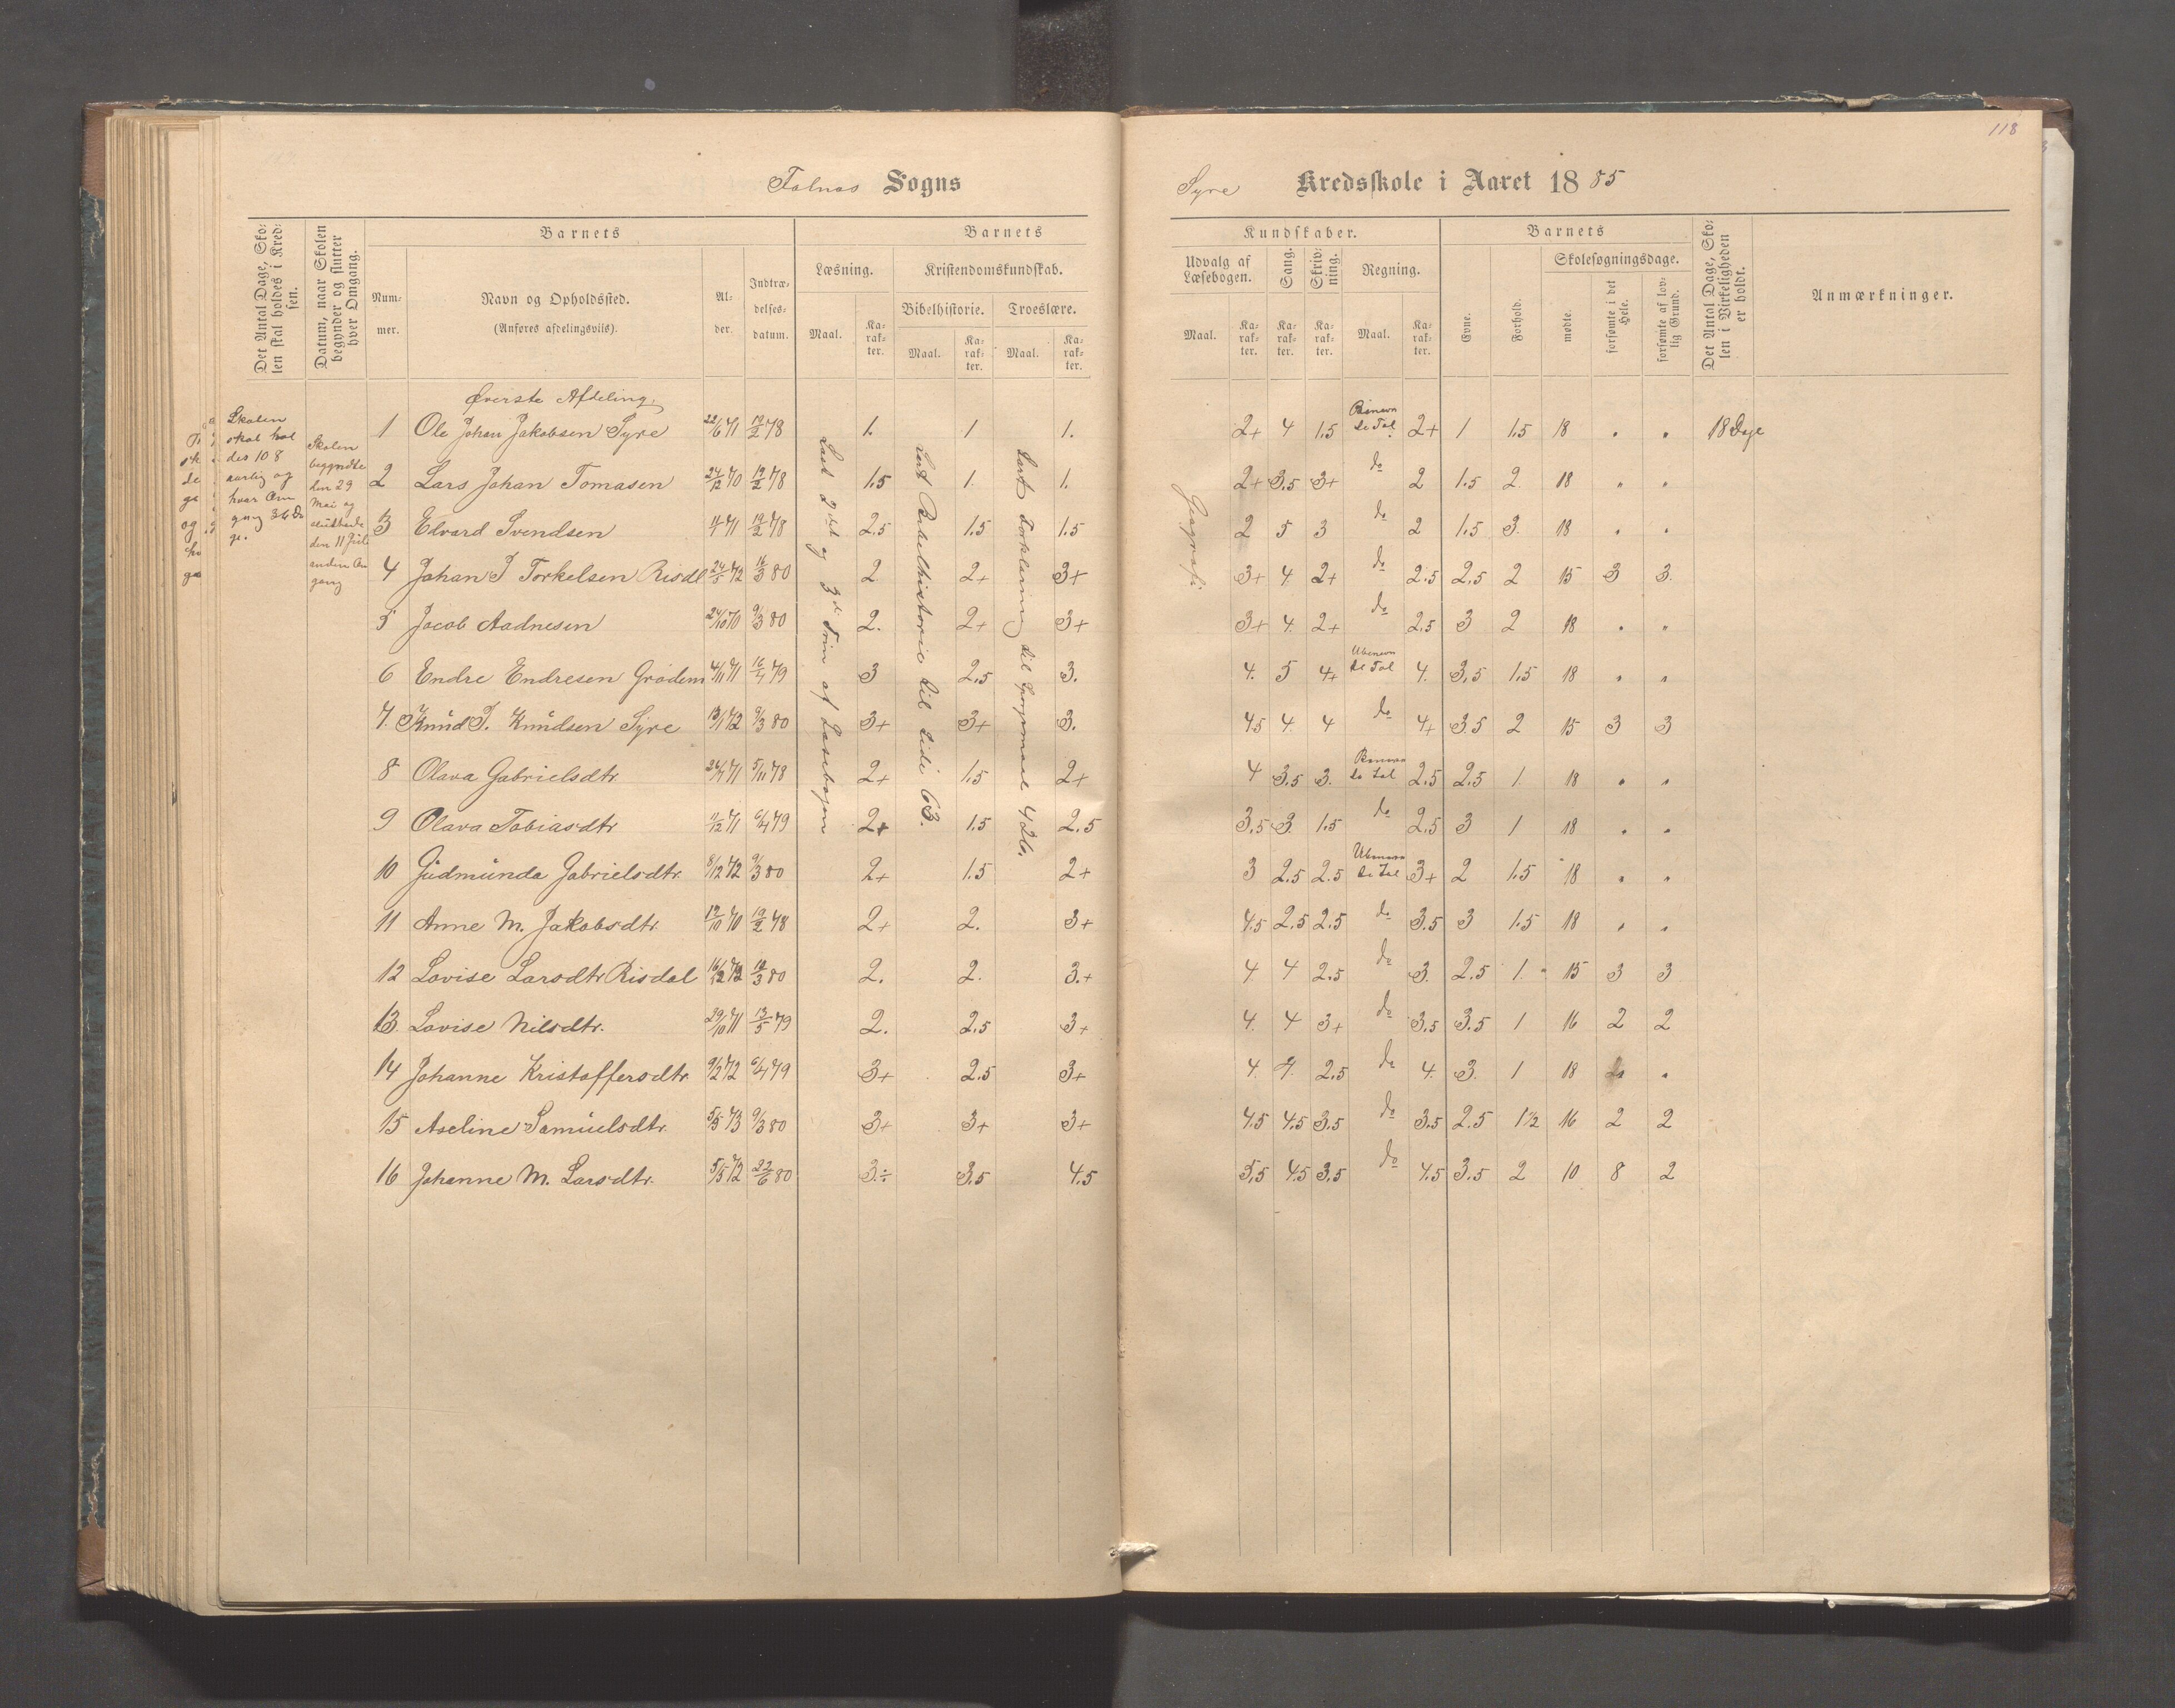 118
Falnes Sogns
Syre Kredsskole i Aaret 1885
Det Antal Dage, Sko-
len skal holdes i Kred-
sen.
Datum, naar Skolen
begynder og slutter
hver Omgang.
Barnets
Num-
mer.
Navn og Opholdssted.
(Anføres afdelingsviis).
Al-
der.
Indtræ-
delses-
datum.
Barnets
Læsning.
Maal.
Ka-
rak-
ter.
Kristendomskundskab.
Bibelhistorie.
Maal.
Ka-
rak-
ter.
Troeslære.
Maal.
Ka-
rak-
ter.
Kundskaber.
Udvalg af
Læsebogen.
Maal.
Ka-
rak-
ter.
Sang.
Ka-
rak-
ter.
Skriv-
ning.
Ka-
rak-
ter.
Regning.
Maal.
Ka-
rak-
ter.
Barnets
Evne.
Forhold.
Skolesøgningsdage.
mødte.
forsømte i det
Hele.
forsømte af lov-
lig Grund.
Det Antal Dage, Sko-
len i Virkeligheden
er holdt.
Anmærkninger.
Skolen
skal hol
des 108
aarlig og
hver Om
gang 36 Da
ge.
Skolen
begyndte
den 29
Mai og
sluttede
den 11 Juli
anden Om
gang
Læst 2det og 3die Trin af Læsebogen
Læst Bibelhistorie til Side 63.
Læst Forklaring til Spørgsmaal 426.
Geografi
Øverste Afdeling.
1 Ole Johan Jakobsen Syre 22/6 71 19/2 78 1. 1 1. 2+ 4 1.5 Benævn
de Tal 2+ 1 1.5 18 " " 18 Dage
2 Lars Johan Tomasen 24/12 70 19/2 78 1.5 1. 1. 2+ 3.5 3+ do 2 1.5 2. 18 " "
3 Edvard Svendsen 4/1 71 19/2 78 2.5 1.5 1.5 2 5 3 do 2 1.5 3. 18 " "
4 Johan J Torkelsen Risdl 24/5 72 16/3 80 2. 2+ 3+ 3+ 4. 2+ do 2.5 2.5 2 15 3 3.
5 Jacob Aadnesen 24/10 70 9/3 80 2. 2+ 3+ 3+ 4. 2+ do 2.5 3 2 18 " "
6 Endre Endresen Grødem 4/11 71 16/4 79 3 2.5 3. 4. 5 4+ Ubenævn
de Tal 4. 3.5 1.5 18 " "
7. Knud T. Knudsen Syre 13/1 72 9/3 80 3+ 3+ 3. 4.5 4. 4 do 4+ 3.5 2 15 3 3
8 Olava Gabrielsdtr 24/7 71 5/11 78 2+ 1.5 2+ 4 3.5 3. Benævn
de Tal 2.5 2.5 1. 18 " "
9 Olava Tobiasdtr 11/12 71 6/4 79 2+ 1.5 2.5 3.5 3. 1.5 do 2.5 3 1 18 " "
10 Gudmunda Gabrielsdtr. 8/12 72 9/3 80 2+ 1.5 2+ 3 2.5 2.5 Ubenævn
de Tal 3+ 2 1.5 18 " "
11 Anne M. Jakobsdtr. 19/10 70 19/2 78 2+ 2. 3+ 4.5 2.5 2.5 do 3.5 3 1.5 18 " "
12 Lovise Larsdtr Risdal 16/12 72 19/3 80 2. 2. 3.+ 4 4 2.5 do 3. 2.5 1. 15 3 3
13. Lovise Nilsdtr. 29/10 71 13/5 79 2. 2.5 3+ 4. 4 3+ do 3.5 3.5 1 16 2 2
14 Johanne Kristoffersdtr. 9/2 72 6/4 79 3+ 2.5 3+ 4. 4. 2.5 do 4. 3. 1 18 " "
15 Aseline Samuelsdtr. 5/5 73 9/3 80 3+ 3+ 3+ 4.5 4.5 3.5 do 3.5 2.5 1 1/2 16 2 2
16 Johanne M. Larsdtr. 5/5 72 22/6 80 3.÷ 3.5 4.5 5,5 4.5 3.5 do 4.5 3.5 2 10 8 2